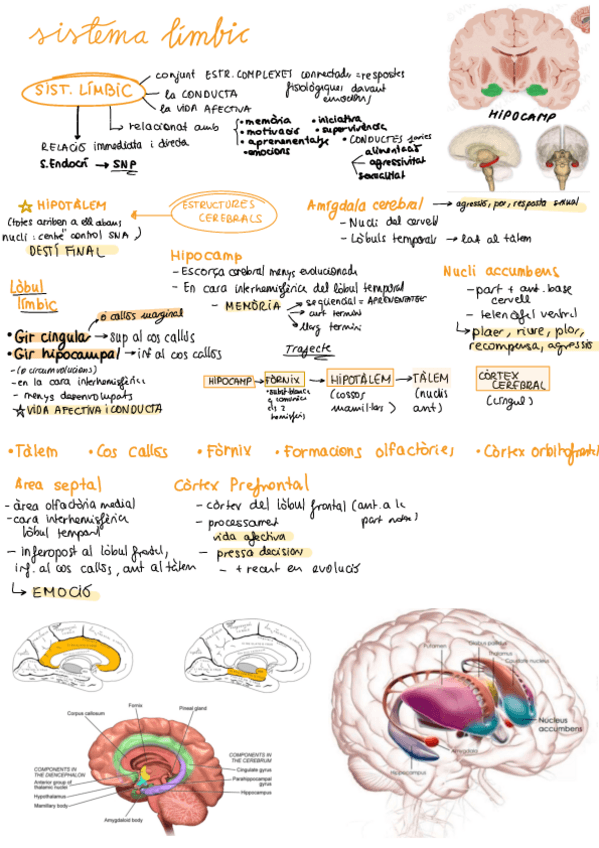 sistema límbic
SIST. LÍMBIC
conjunt ESTR. COMPLEXES connectades = respostes
fisiològiques davant
emocions
la CONDUCTA
la VIDA AFECTIVA
relacionat amb
• memòria
• motivació
• aprenentatge
• emocions
• iniciativa
• supervivència
• CONDUCTES
alimentació
agressivitat
sexualitat
RELACIÓ immediata i directa
S. Endocrí → SNP
HIPOCAMP
☆ HIPOTÀLEM
(totes arriben a ell abans
nucli "centre" control SNA)
DESTÍ FINAL
ESTRUCTURES
CEREBRALS
Amígdala cerebral → agressió, por, resposta sexual
- Nucli del cervell
- Lòbuls temporals → lat al tàlem
Hipocamp
- Escorça cerebral menys evolucionada
- En cara interhemisfèrica del lòbul temporal
- MEMÒRIA
seqüencial = APRENENTATGE
curt termini
llarg termini
Nucli accumbens
- part + ant. base
cervell
- telencèfal ventral
↳ plaer, riure, plor,
recompensa, agressió
Lòbul
límbic
o callós marginal
• Gir cíngula → sup al cos callós
• Gir hipocampal → inf al cos callós
- (o circumvolucions)
- en la cara interhemisfèrica
- menys desenvolupats
☆ VIDA AFECTIVA i CONDUCTA
Trajecte
HIPOCAMP → FÒRNIX → HIPOTÀLEM → TÀLEM
CÒRTEX
CEREBRAL
• subst blanca
q comunica
els 2
hemisferis
(cossos
mamil·lars)
(nuclis
ant)
(cíngul)
• Tàlem • Cos callós • Fòrnix • Formacions olfactòries • Còrtex orbitofrontal
Àrea septal
- àrea olfactòria medial
- cara interhemisfèrica
lòbul temporal
- inferopost al lòbul frontal,
inf. al cos callós, ant al tàlem
↳ EMOCIÓ
Còrtex Prefrontal
- còrtex del lòbul frontal (ant. a la
part motora)
- processament
vida afectiva
- pressa decision
- + recent en evolució
Corpus callosum
Fornix
Pineal gland
COMPONENTS IN
THE DIENCEPHALON
Anterior group of
thalamic nuclei
Hypothalamus
Mamillary body
Amygdaloid body
COMPONENTS IN
THE CEREBRUM
Cingulate gyrus
Parahippocampal
gyrus
Hippocampus
Putamen
Globus pallidus
Thalamus
Caudate nucleus
Nucleus
accumbens
Amygdala
Hippocampus